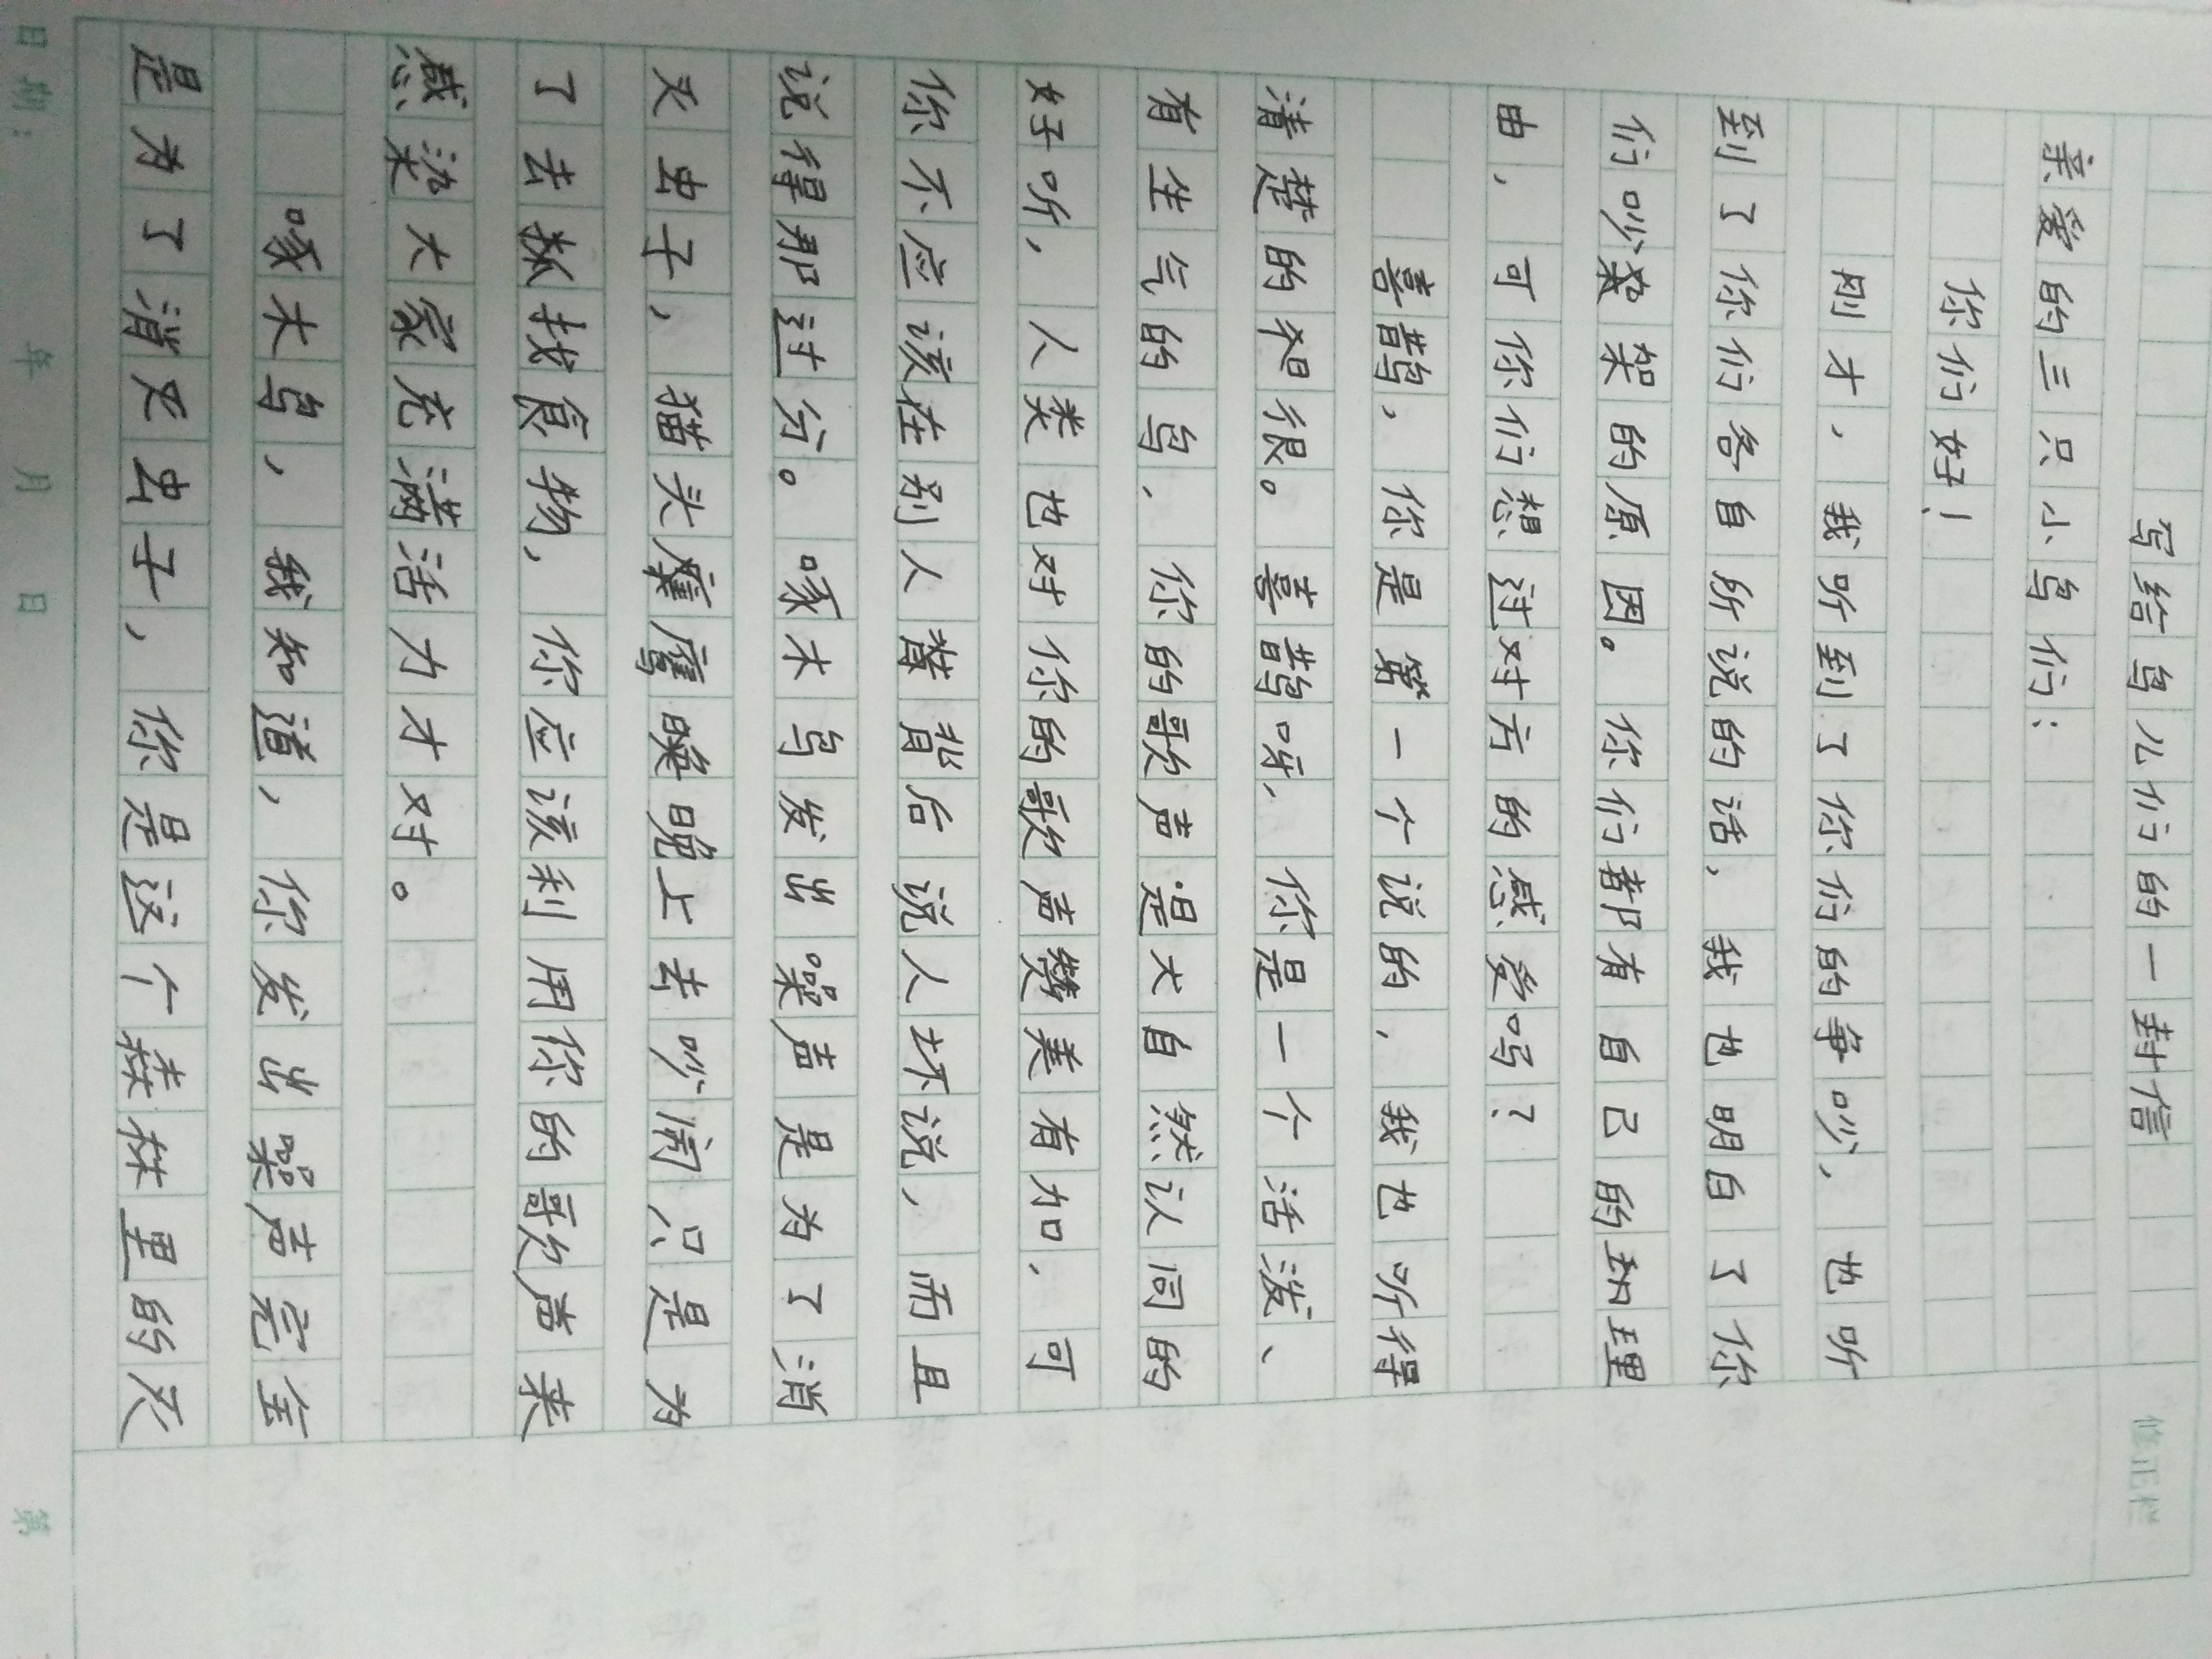 写给鸟儿们的一封信
亲爱的三只小鸟们：
你们好！
刚才，我听到了你们的争吵，也听
到了你们各自所说的话，我也明白了你
们吵架的原因。你们都有自己的理
由，可你们想过对方的感受吗？
喜鹊，你是第一个说的，我也听得
清楚的和很。喜鹊呀，你是一个活泼、
有生气的鸟，你的歌声是大自然认同的
好听，人类也对你的歌声赞美有加，可
你不应该在别人背后说人坏说，而且
说得那过分。啄木鸟发出噪声是为了消
灭虫子，猫头鹰晚上去吵闹只是为
了去找食物，你应该利用你的歌声来
感染大家充满活力才对。
啄木鸟，我知道，你发出噪声完全
是为了消灭虫子，你是这个森林里的灭
修正栏
日期：　年　月　日　第